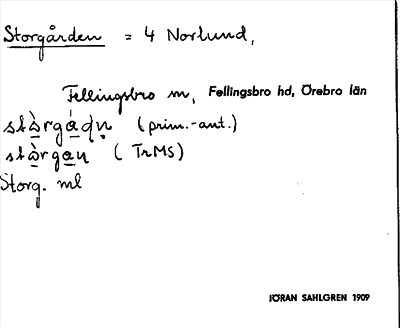 Storgården = 4 Norlund,
Fellingsbro m, Fellingsbro hd, Örebro län
stò̱rgá̱dṇ (prim.-ant.)
stò̱rga̱ṇ (TrMS)
Storg. ml
JÖRAN SAHLGREN 1909